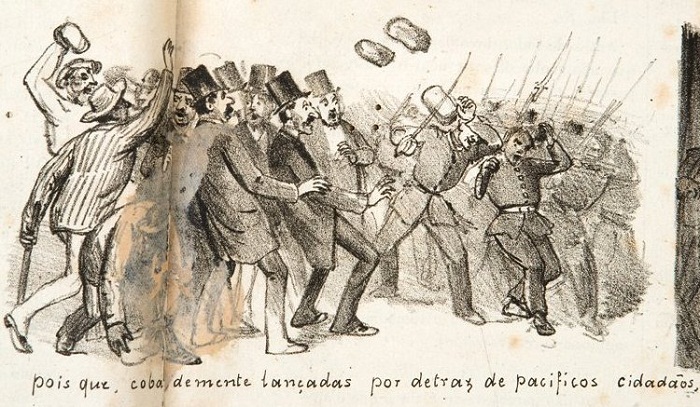 pois que, cobardemente lançadas por detraz de pacificos cidadãos,